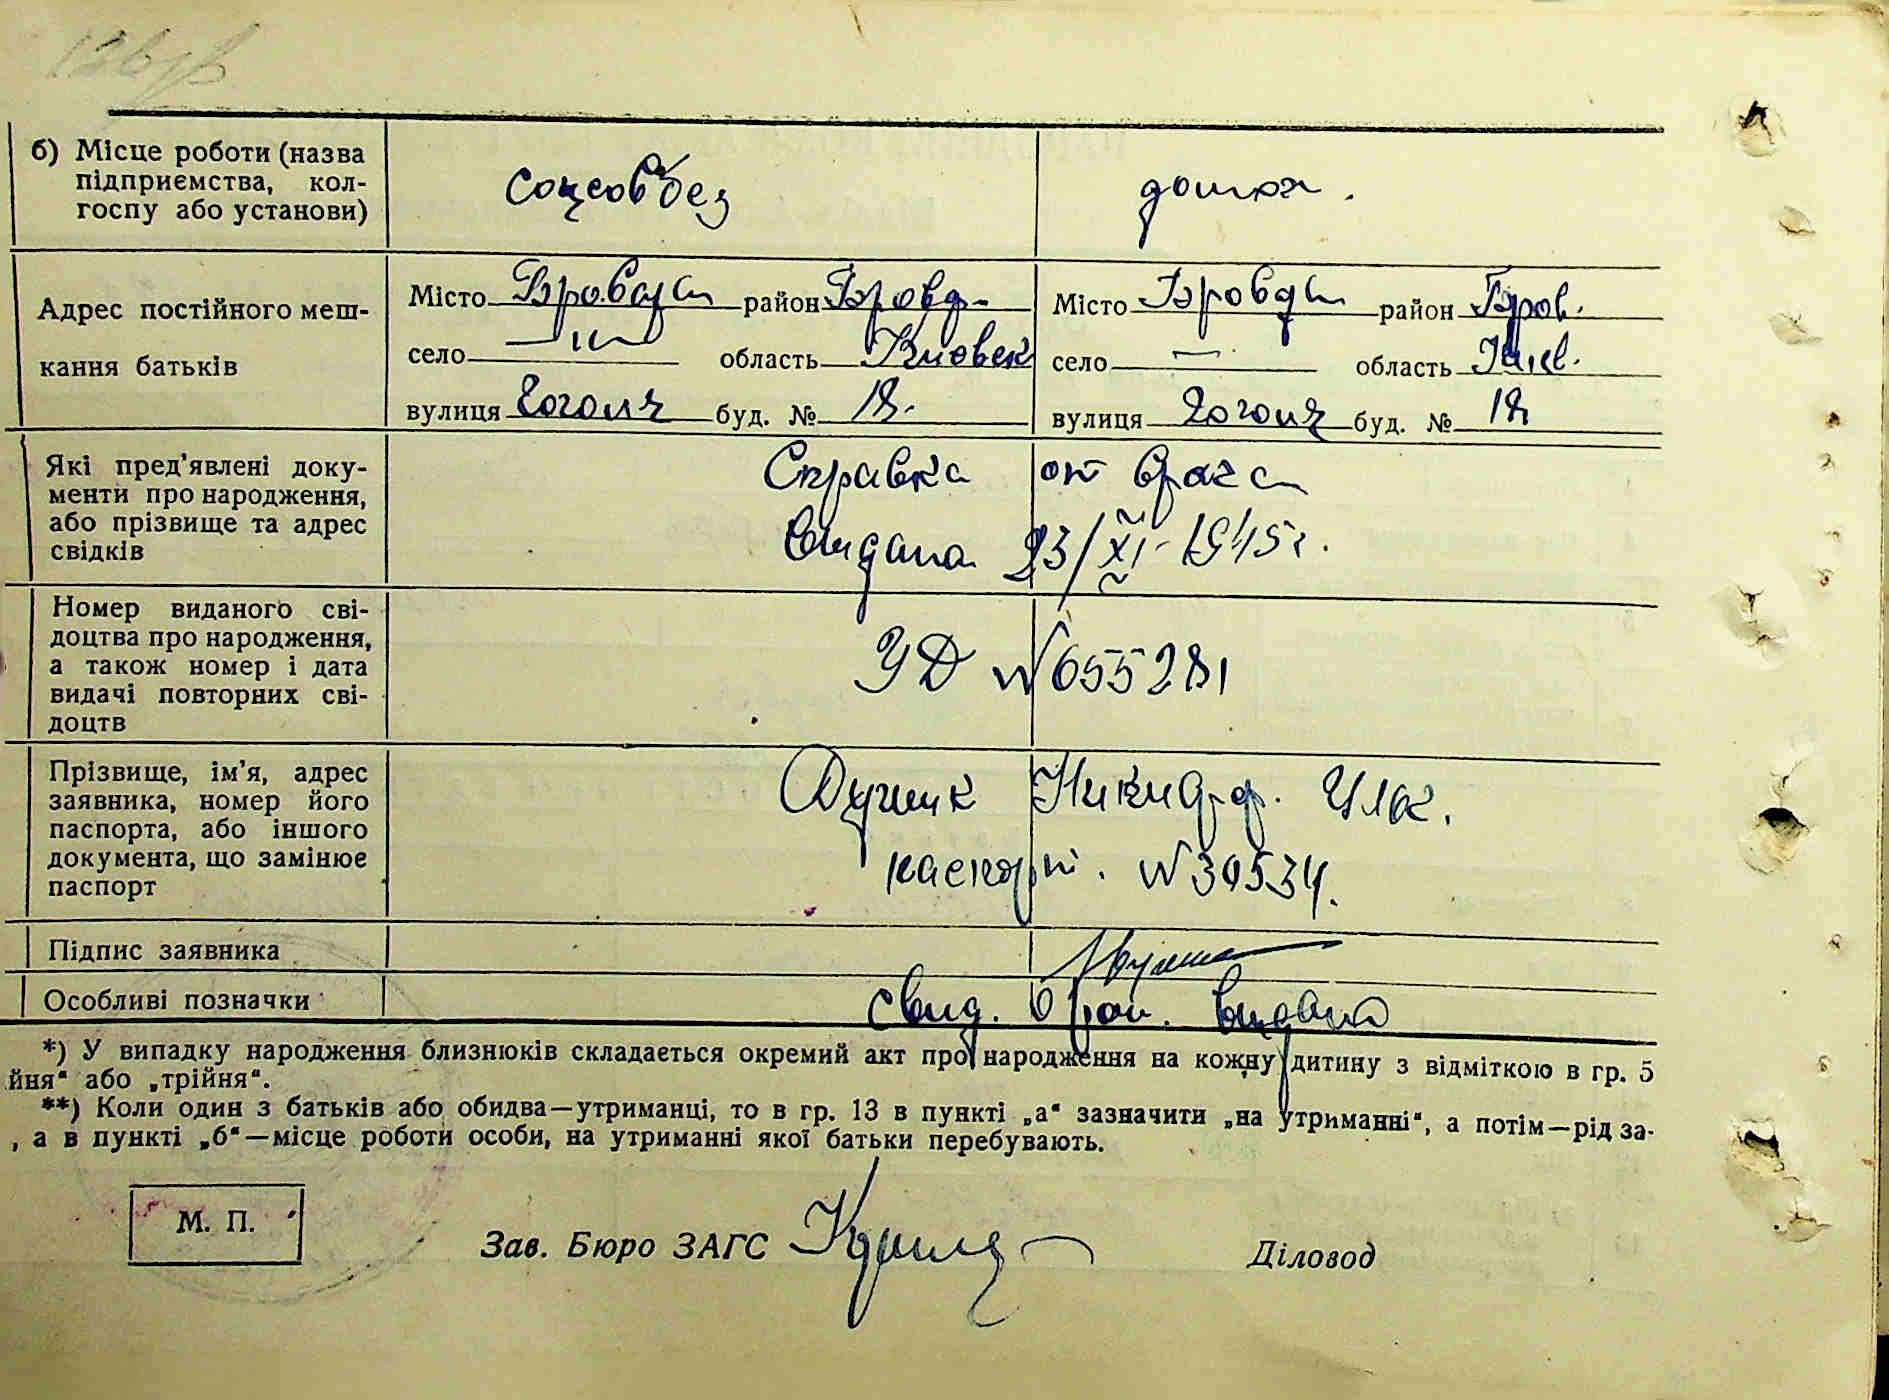 б) Місце роботи (назва
підприємства, кол-
госпу або установи)
соцсобез
дошох.
Адрес постійного меш-
кання батьків
Місто Бровары район Бровар.
село — область Киевск
вулиця Гоголя буд. № 18.
Місто Бровары район Бров.
село — область Киев.
вулиця Гоголя буд. № 18
Які пред'явлені доку-
менти про народження,
або прізвище та адрес
свідків
Справка от врача
выдана 23/XI-1945г.
Номер виданого сві-
доцтва про народження,
а також номер і дата
видачі повторних сві-
доцтв
УД № 655281
Прізвище, ім'я, адрес
заявника, номер його
паспорта, або іншого
документа, що замінює
паспорт
Никифор
паспорт. № 30534.
Підпис заявника
Особливі позначки
свид. о рож. выдано
*) У випадку народження близнюків складається окремий акт про народження на кожну дитину з відміткою в гр. 5
йня" або „трійня".
**) Коли один з батьків або обидва—утриманці, то в гр. 13 в пункті „а" зазначити „на утриманні", а потім—рід за-
, а в пункті „б"—місце роботи особи, на утриманні якої батьки перебувають.
М. П.
Зав. Бюро ЗАГС
Діловод